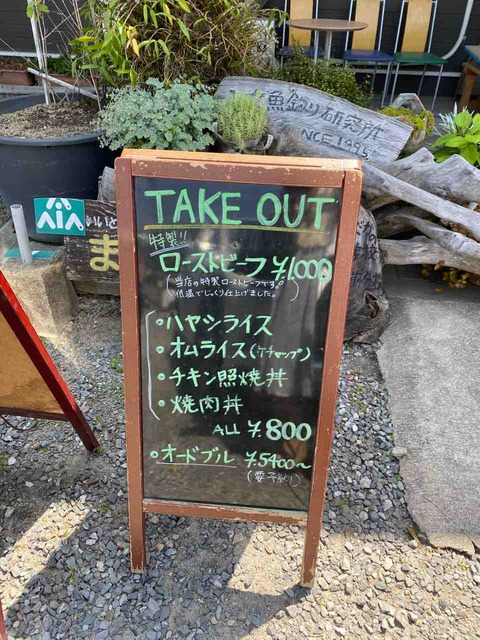 魚釣り研究所
NCE 1995!
TAKE OUT
特製!!
ローストビーフ ¥1,000
(当店の特製ローストビーフです。
低温でじっくり仕上げました。)
・ハヤシライス
・オムライス(ケチャップ)
・チキン照焼丼
・焼肉丼
ALL ¥800
・オードブル ¥5400〜
(要予約)